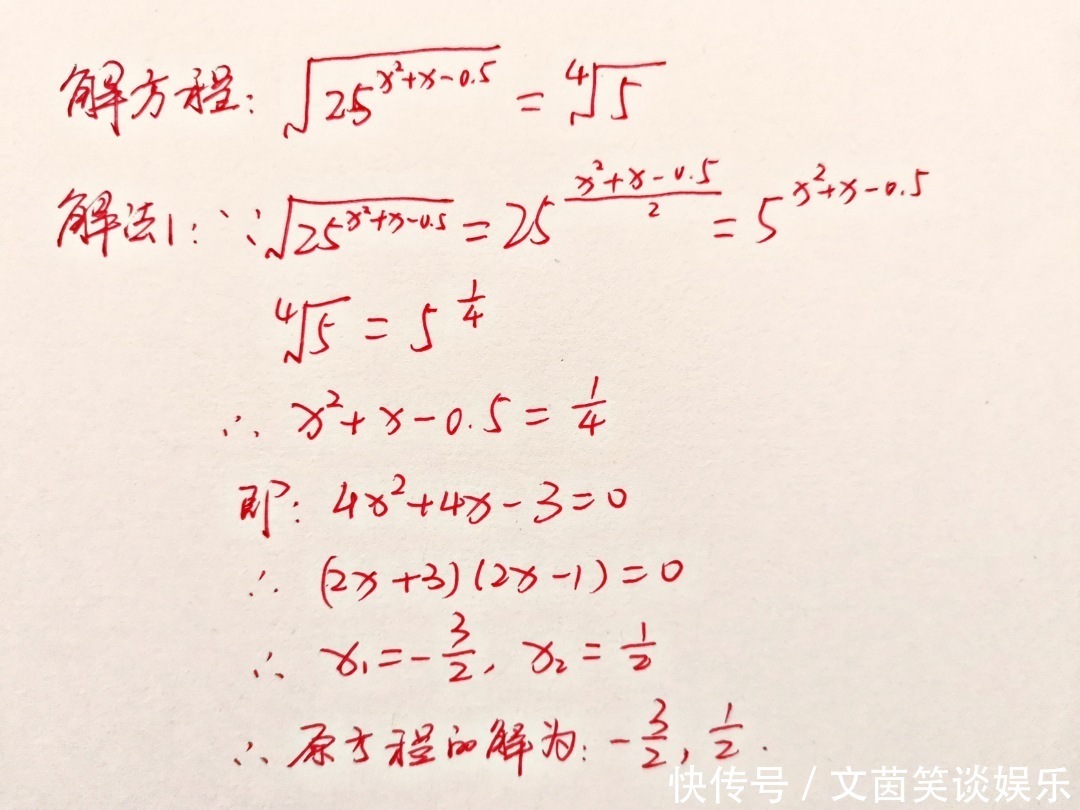 解方程: √(25^(x²+x-0.5)) = ⁴√5
解法1: ∵ √(25^(x²+x-0.5)) = 25^((x²+x-0.5)/2) = 5^(x²+x-0.5)
⁴√5 = 5^(1/4)
∴ x²+x-0.5 = 1/4
即: 4x²+4x-3=0
∴ (2x+3)(2x-1)=0
∴ x₁=-3/2, x₂=1/2
∴ 原方程的解为: -3/2, 1/2.
快传号 / 文茵笑谈娱乐